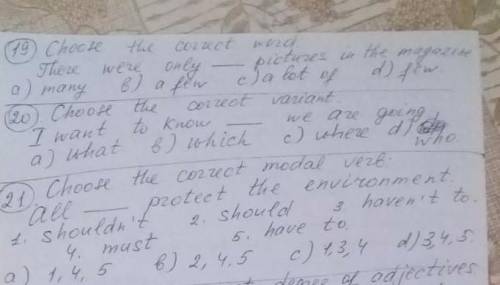 19 Choose the correct word
There were only ___ pictures in the magazine
a) many b) a few c) a lot of d) few.
20. Choose the correct variant.
I want to know ___ we are going
a) what b) which c) where d) who
21 Choose the correct modal verb:
All ___ protect the environment.
1. shouldn't 2. should 3. haven't to.
4. must 5. have to.
a) 1, 4, 5 b) 2, 4, 5 c) 1, 3, 4 d) 3, 4, 5.
of adjectives